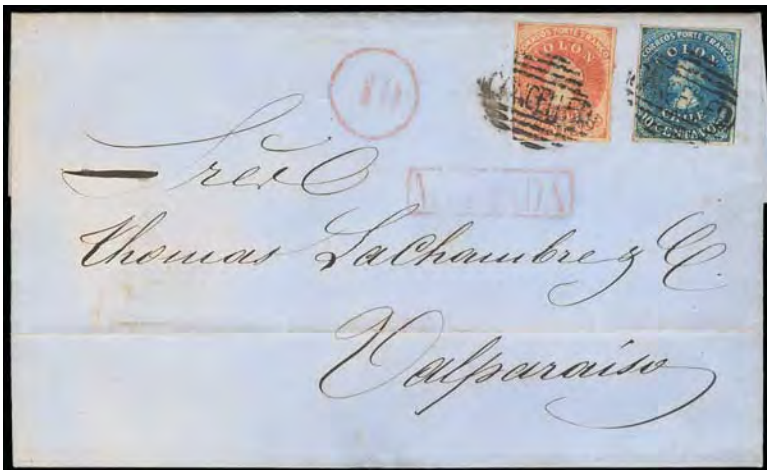 CORREOS PORTE FRANCO
COLON
CORREOS PORTE FRANCO
COLON
CHILE
10 CENTAVOS
CANCELED
10
Sres
Thomas LaChambre y C.
Valparaiso